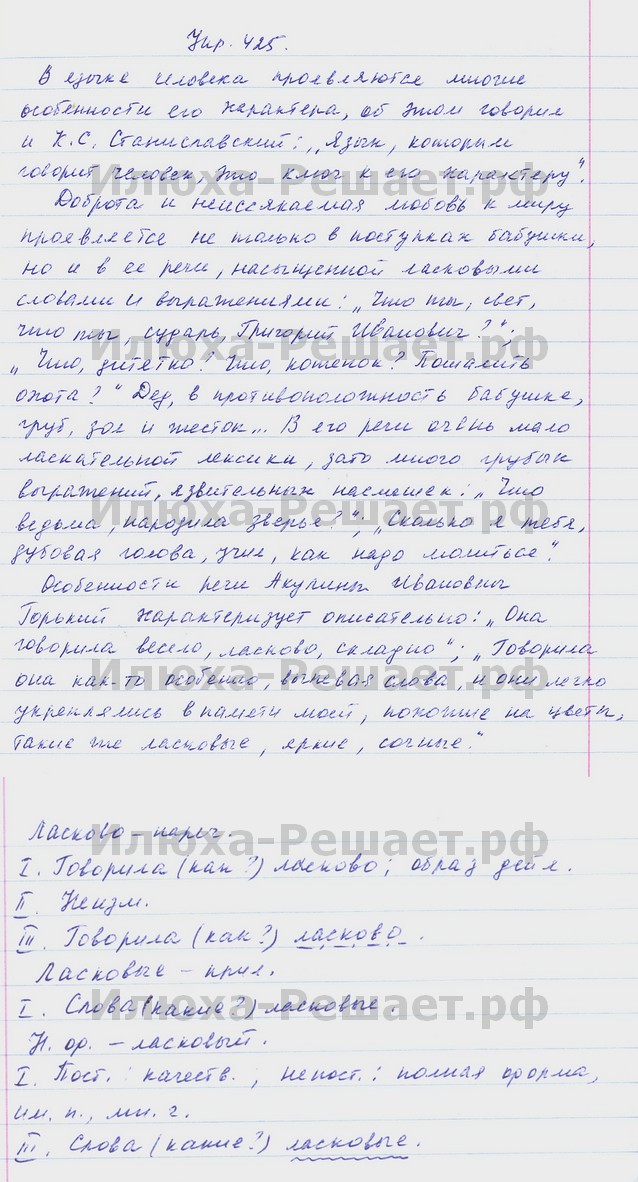 Упр. 425.
В языке человека проявляются многие
особенности его характера, об этом говорил
и К.С. Станиславский: „Язык, которым
говорит человек, это ключ к его характеру".
Илюха-Решает.рф
Доброта и неиссякаемая любовь к миру
проявляется не только в поступках бабушки,
но и в ее речи, насыщенной ласковыми
словами и выражениями: „Что ты, свет,
что ты, сударь, Григорий Иванович?";
Илюха-Решает.рф
„Что, дитятко? Что, котенок? Пошалить
охота?" Дед, в противоположность бабушке,
груб, зол и жесток... В его речи очень мало
ласкательной лексики, зато много грубых
выражений, язвительных насмешек: „Что
Илюха-Решает.рф
ведьма, народила зверья?"; „Сколько я тебя,
дубовая голова, учил, как надо молиться".
Особенности речи Акулины Ивановны
Горький характеризует описательно: „Она
говорила весело, ласково, складно"; „Говорила
Илюха-Решает.рф
она как-то особенно, выпевая слова, и они легко
укреплялись в памяти моей, похожие на цветы,
такие же ласковые, яркие, сочные."
Ласково – нареч.
Илюха-Решает.рф
I. Говорила (как?) ласково; образ дейс.
II. Неизм.
III. Говорила (как?) ласково.
Ласковые – прил.
I. Слова (какие?) – ласковые.
Илюха-Решает.рф
Н. ф. – ласковый.
I. Пост.: качеств., непост.: полная форма,
им. п., мн. ч.
III. Слова (какие?) ласковые.
Илюха-Решает.рф